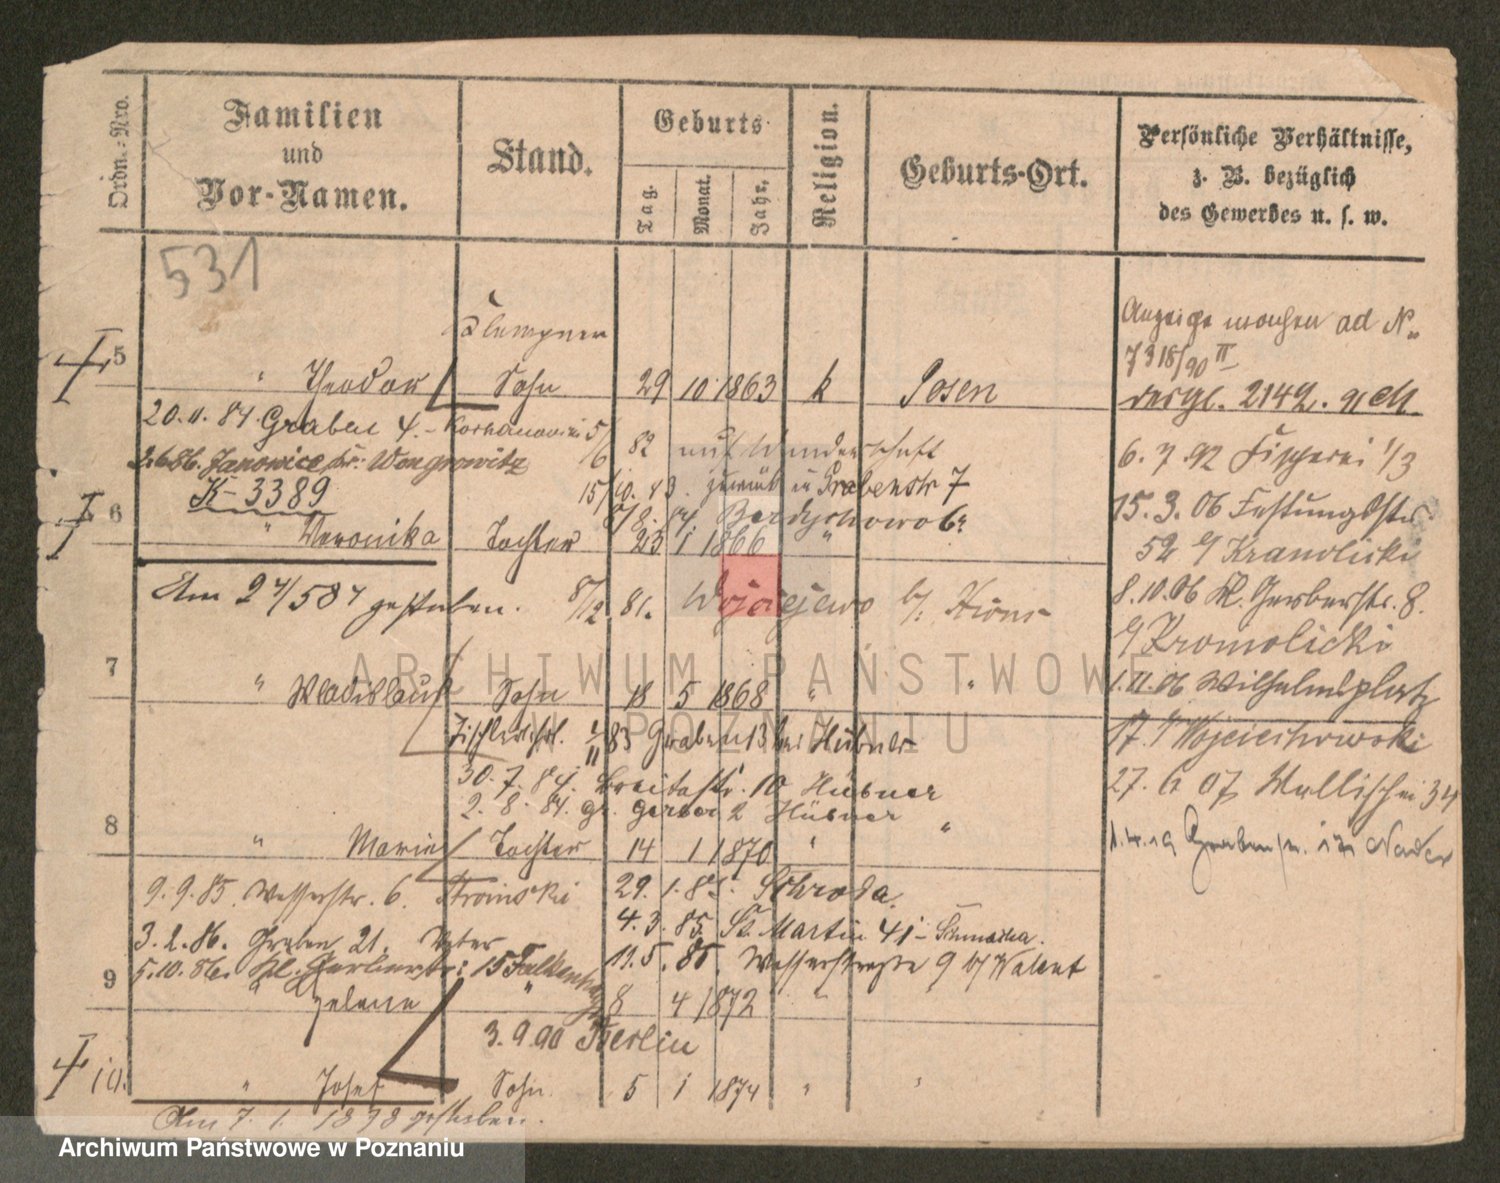 Ordn.-Nro.
Familien
und
Vor-Namen.
Stand.
Geburts
Tag.
Monat.
Jahr.
Religion.
Geburts-Ort.
Persönliche Verhältnisse,
z. B. bezüglich
des Gewerbes u. s. w.
531
Klempner
5 " Theodor Sohn 29 10 1863 k Posen
Anzeige machen ad N
7318/90 II
desgl. 2142.
20.11.84. Graben 4.
5/6 82 auf Wanderschaft
2.6.86. Janowice Kr. Wongrowitz
K-3389
15/10. 83. zurück in Grabenstr 7
8. 84. Berdychowo 6
6 " Veronika Tochter 23 1 1866 "
Am 2 4/5 87 gestorben. 8/12. 81. Wojciejewo b/
7 " Wladislaus Sohn 18 5 1868 " "
Tischlerlehrl. 83 Graben 13 bei Hübner
30. 7. 84. Breitestr. 10 Hübner
2. 8. 84. gr. Gerber 2 Hübner
8 " Marie Tochter 14 1 1870 " "
9. 9. 85. Wasserstr. 6.
29. 1. 85. Schroda.
4. 3. 85. St. Martin 41
3. 2. 86. Graben 21. Vater
19. 5. 85. Wasserstraße 9
5. 10. 86. Kl. Gerberstr: 15 Falkenhagen
9 " Helene " 8 4 1872 "
3. 9. 90 Berlin
10. " Josef Sohn. 5 1 1874 " "
Am 7. 1. 1878 gestorben.
6. 7. 92 Fischerei 1/3
15. 3. 06 Festungsstr.
52 b/
8. 10. 06 Kl. Gerberstr. 8.
b/ Kromolicki
1. 11. 06 Wilhelmsplatz
17. b/ Wojciechowski
27. 6 07 Wallischei 34
ARCHIWUM PAŃSTWOWE
W POZNANIU
Archiwum Państwowe w Poznaniu